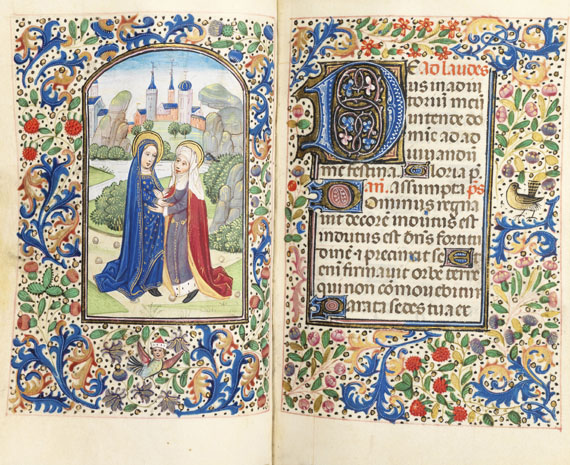 Ad laudes
Deus in adiu
toriu mei
intende do
mie ad ad
iuuandu
me festina. Gloria p.
an. assumpta ps
Dominus regna
uit decore indutus est
indutus est dns fortitu
dine et precinxit se
Eteni firmauit orbe terre
qui non comouebitur
Parata sedes tua ex